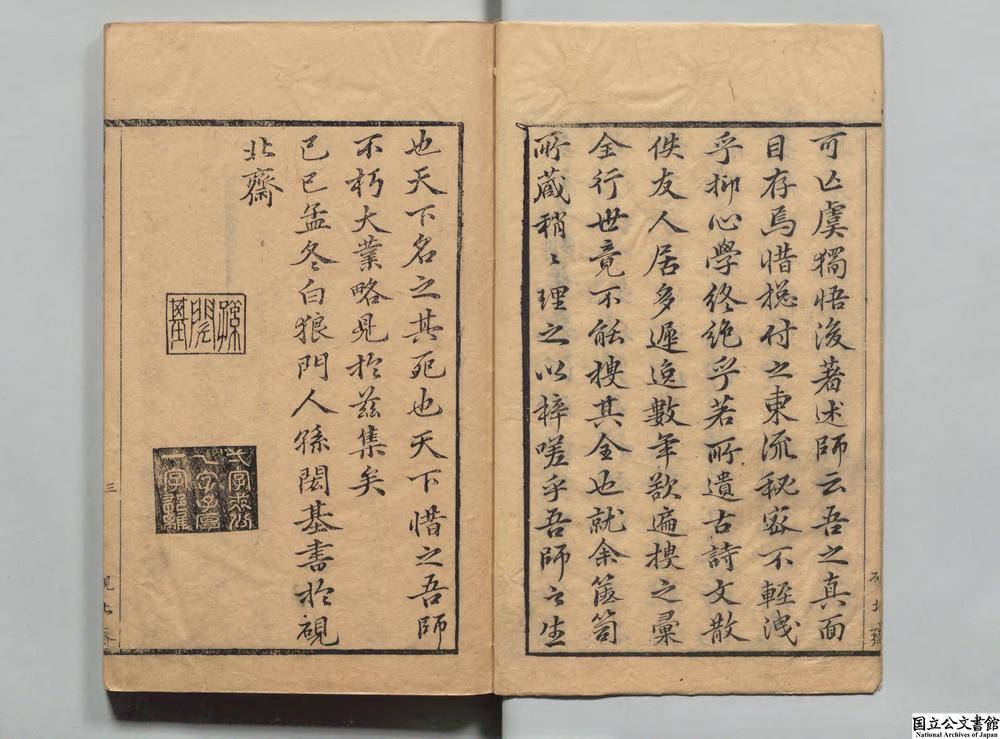 可亾虞獨悟後著述師云吾之真面
目存焉惜揔付之東流秘密不輕洩
乎抑心學終絶乎若所遺古詩文散
佚友人居多遲迻數年欲遍搜之彙
全行世竟不能搜其全也就余篋笥
所蔵稍〻理之以梓嗟乎吾師之生
也天下名之其死也天下惜之吾師
不朽大業略見於兹集矣
己巳孟冬白狼門人孫閎基書於硯
北齋
孫閎基
三
硯北齋
硯北齋
国立公文書館
National Archives of Japan